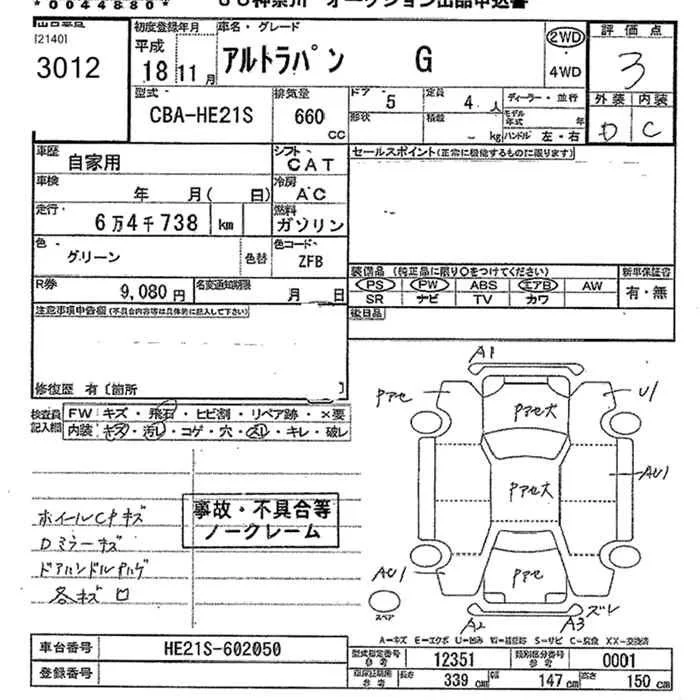 *0044880*
JU神奈川 オークション出品申込書
[2140]
3012
初度登録年月
平成
18 11月
車名・グレード
アルトラパン G
2WD
4WD
評価点
3
外装 内装
D C
型式
CBA-HE21S
排気量
660
cc
ドア 5
定員 4 人
ディーラー・並行
形状
積載 - kg
モデル年式 年
ハンドル 左・右
車歴
自家用
シフト
CAT
セールスポイント(正常に機能するものに限ります)
車検
年 月( 日)
冷房
AC
走行
6万4千738 km
燃料
ガソリン
色
グリーン
色替
色コード
ZFB
装備品 (純正品に限り○をつけてください)
新車保証書
PS PW ABS エアB AW
有・無
SR ナビ TV カワ
R券
9,080円
名変通知期限
月 日
後日品
注意事項申告欄(不具合内容等は具体的に記入して下さい)
修復歴 有〔箇所 〕
検査員記入欄
FW キズ・飛石・ヒビ割・リペア跡・×要
内装 キズ・汚レ・コゲ・穴・スレ・キレ・破レ
A1
Pアセ
U1
Pアセ大
Pアセ大
AU1
Pアセ
AU1
A2
A3
ズレ
スペア
ホイールCキズ
Dミラーキズ
ドアハンドルハゲ
各キズ凹
事故・不具合等
ノークレーム
A-キズ E-エクボ U-凹み W-補修跡 S-サビ C-腐食 XX-交換済
車台番号
HE21S-602050
登録番号
型式指定番号
参考
12351
類別区分番号
参考
0001
参考
長さ 339 cm
幅 147 cm
高さ 150 cm